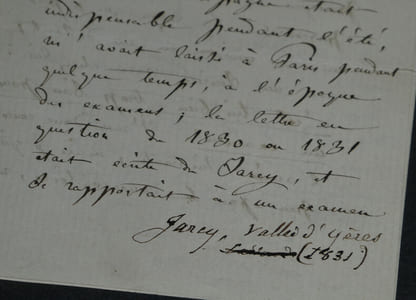 campagne était
indispensable pendant l'été,
m'avait laissé à Paris pendant
quelque temps, à l'époque
des examens ; la lettre en
question de 1830 ou 1831
était écrite de Jarcy, et
se rapportait à un examen
Jarcy, vallée d'Yères
(1831)